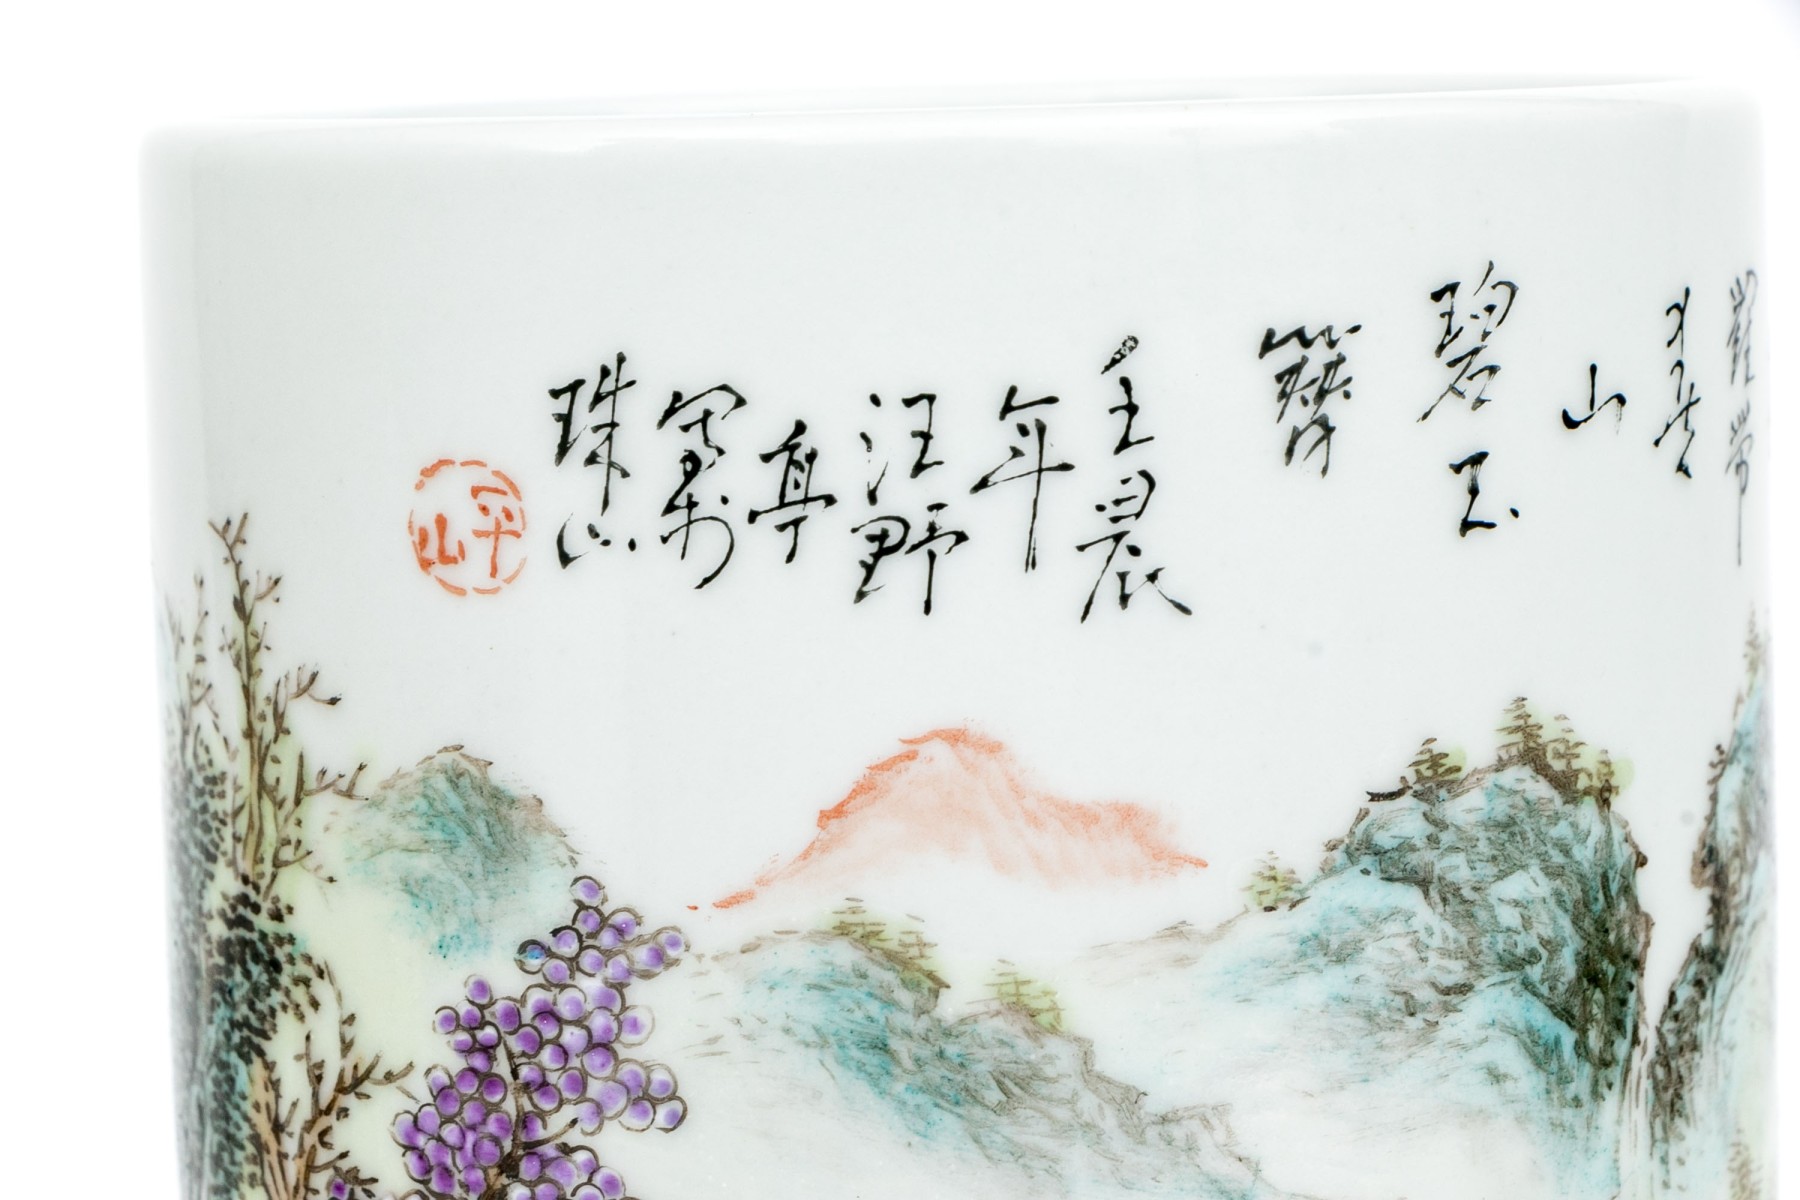 羅帶
山
碧玉
簪
壬晨
年
汪野
亭
寫於
珠山
平山